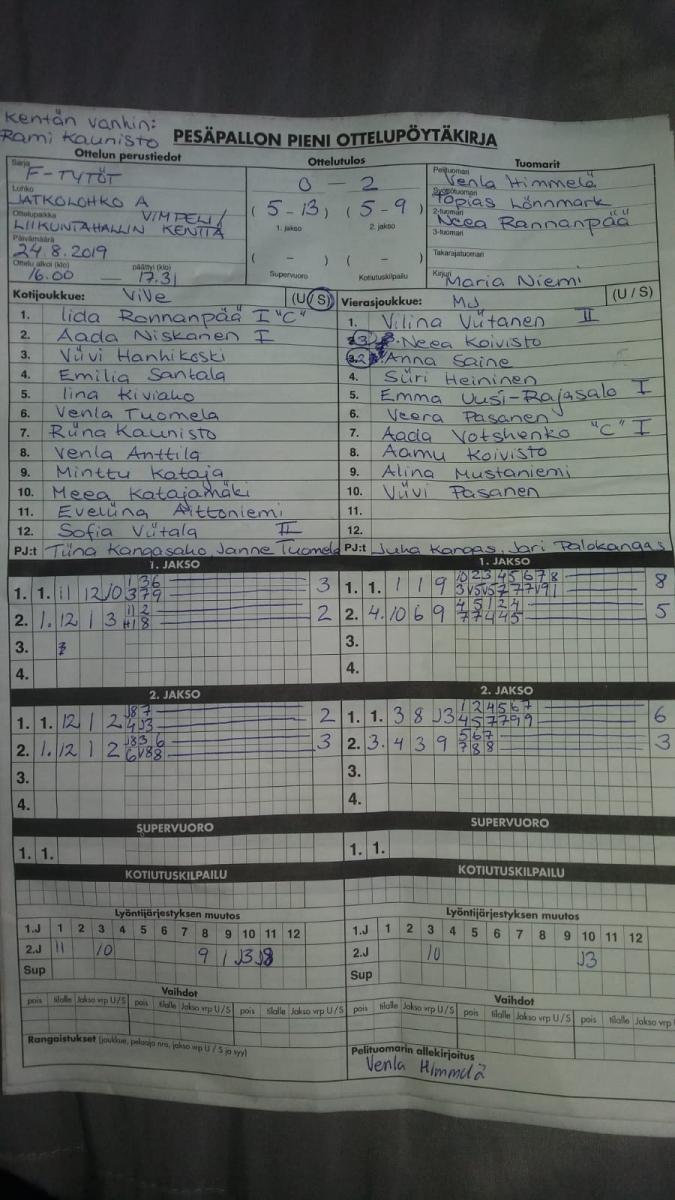 Kentän vanhin:
Rami Kaunisto
PESÄPALLON PIENI OTTELUPÖYTÄKIRJA
Ottelun perustiedot
Ottelutulos
Tuomarit
Sarja F-TYTÖT
Lohko JATKOLOHKO A
Ottelupaikka VIMPELI/
LIIKUNTAHALLIN KENTTÄ
Päivämäärä 24.8.2019
Ottelu alkoi (klo) 16.00 — päättyi (klo) 17.31
0 – 2
(5-13) (5-9)
1. jakso 2. jakso
( – ) ( – )
Supervuoro Kotiutuskilpailu
Pelituomari Venla Himmelä
Syöttötuomari Topias Lönnmark
2-tuomari Neea Rannanpää
3-tuomari
Takarajatuomari
Kirjuri Maria Niemi
Kotijoukkue: ViVe (U/S)
1. Iida Rannanpää I "C"
2. Aada Niskanen I
3. Viivi Hanhikoski
4. Emilia Santala
5. Iina Kiviaho
6. Venla Tuomela
7. Riina Kaunisto
8. Venla Anttila
9. Minttu Kataja
10. Meea Katajamäki
11. Eveliina Aittoniemi
12. Sofia Viitala II
PJ:t Tiina Kangasaho Janne Tuomela
Vierasjoukkue: MJ (U/S)
1. Vilina Viitanen II
3. Neea Koivisto
2. Anna Saine
4. Siiri Heininen
5. Emma Uusi-Rajasalo I
6. Veera Pasanen
7. Aada Votshenko "C" I
8. Aamu Koivisto
9. Alina Mustaniemi
10. Viivi Pasanen
11.
12.
PJ:t Juha Kangas, Jari Palokangas
1. JAKSO
1. 1. 11 12 10 3
2. 1. 12 1 3 2
3.
4.
1. JAKSO
1. 1. 1 1 9 8
2. 4. 10 6 9 5
3.
4.
2. JAKSO
1. 1. 12 1 2 2
2. 1. 12 1 2 3
3.
4.
2. JAKSO
1. 1. 3 8 J3 6
2. 3. 4 3 9 3
3.
4.
SUPERVUORO
1. 1.
SUPERVUORO
1. 1.
KOTIUTUSKILPAILU
KOTIUTUSKILPAILU
Lyöntijärjestyksen muutos
1.J 1 2 3 4 5 6 7 8 9 10 11 12
2.J 11 10 9 1 J3 J8
Sup
Lyöntijärjestyksen muutos
1.J 1 2 3 4 5 6 7 8 9 10 11 12
2.J 10 J3
Sup
Vaihdot
pois tilalle Jakso vrp U/S pois tilalle Jakso vrp U/S pois tilalle Jakso vrp U/S
Vaihdot
pois tilalle Jakso vrp U/S pois tilalle Jakso vrp U/S pois tilalle Jakso vrp U/S
Rangaistukset (joukkue, pelaaja nro, jakso vrp U/S ja syy)
Pelituomarin allekirjoitus
Venla Himmelä